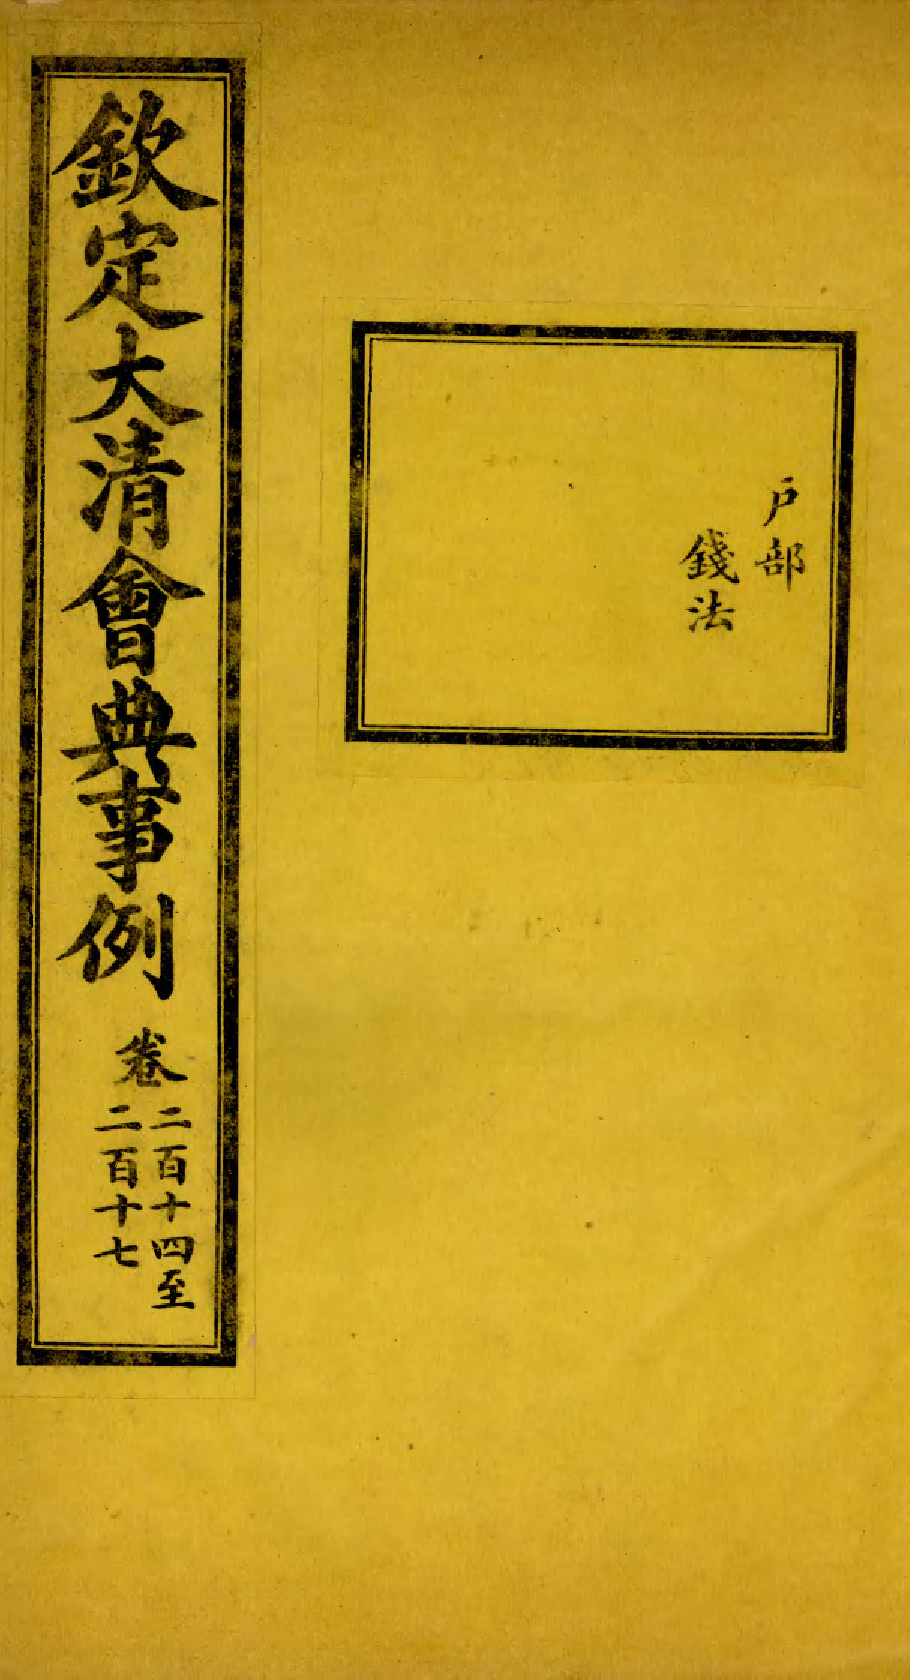 戶部
錢法
欽定大清會典事例
卷
二百十四至
二百十七